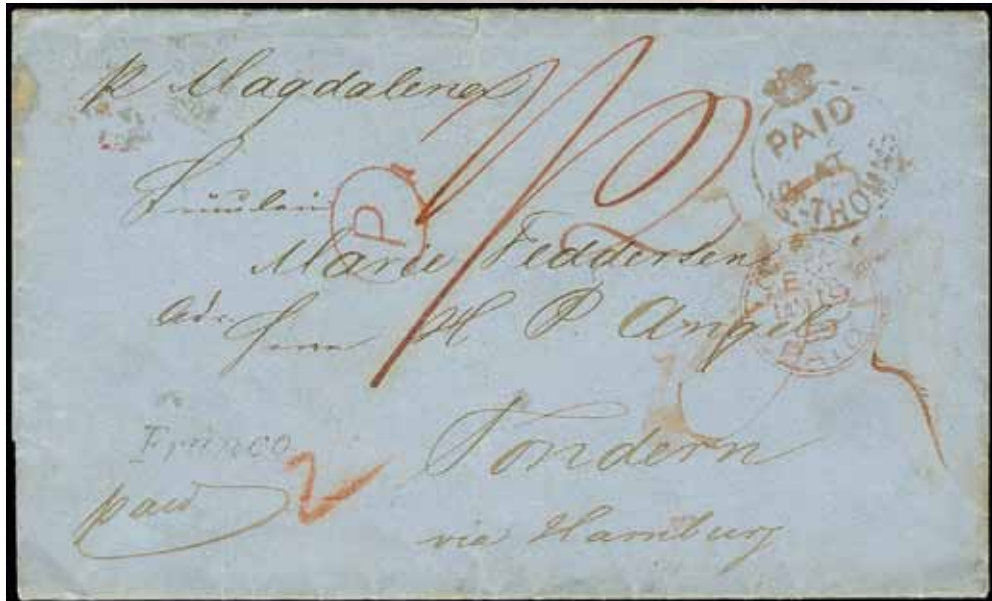 pr Magdalena
1/2
PAID
AT
ST-THOMAS
Fräulein
P
Marie Feddersen
Adr. Herrn H P Angel
PAID
Franco
2
Tondern
paid
via Hamburg